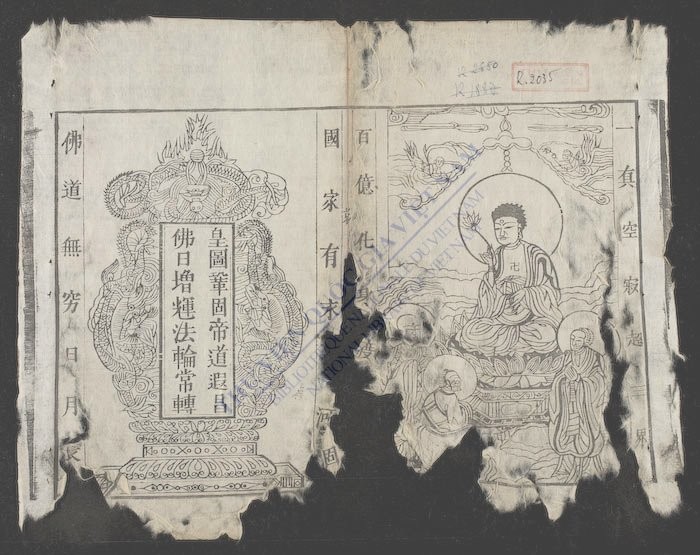 R.2035
一真空寂超三界
卍
百億化身
國家有 河固
皇圖鞏固帝道遐昌
佛日增輝法輪常轉
佛道無窮日月長
THƯ VIỆN QUỐC GIA VIỆT NAM
BIBLIOTHÈQUE NATIONALE DU VIETNAM
NATIONAL LIBRARY OF VIETNAM